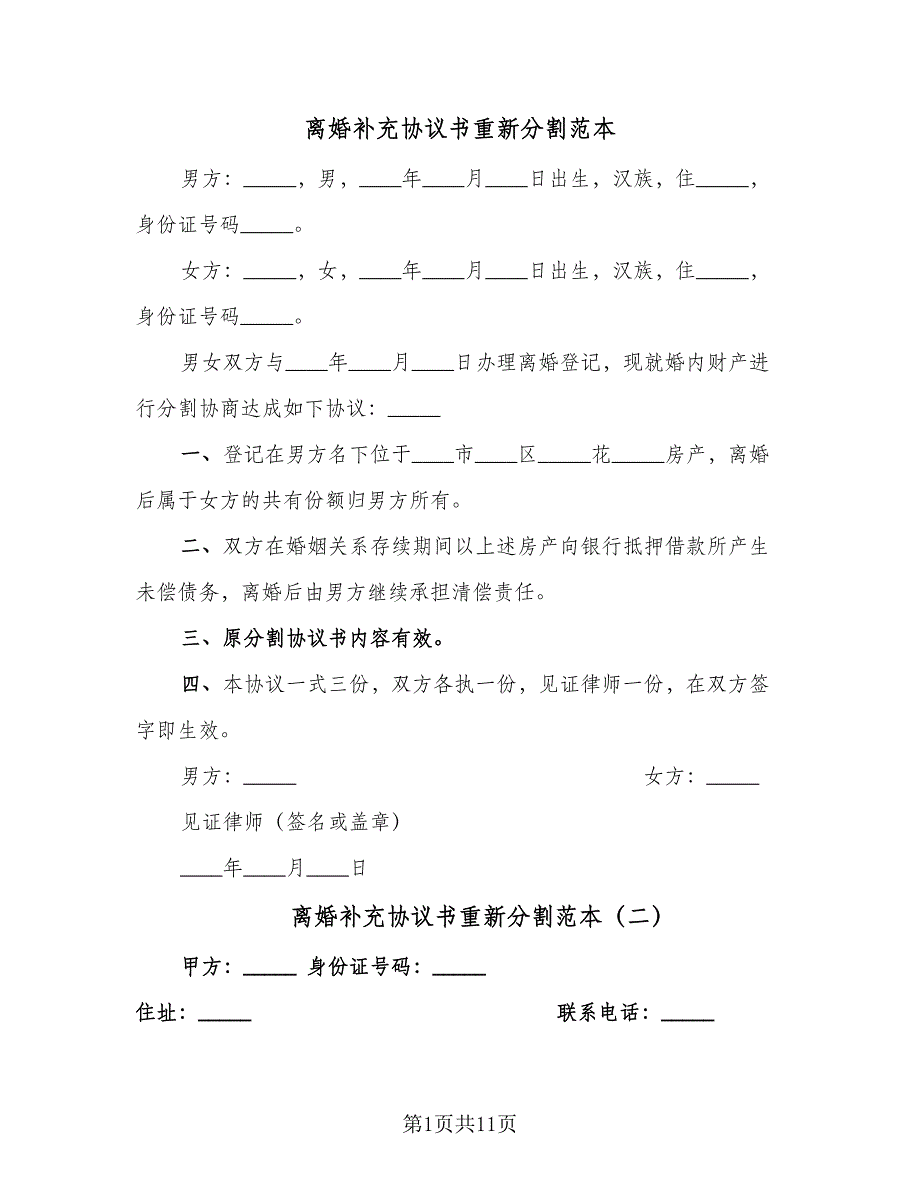 离婚补充协议书重新分割范本
男方：_____，男，____年____月____日出生，汉族，住_____，
身份证号码_____。
女方：_____，女，____年____月____日出生，汉族，住_____，
身份证号码_____。
男女双方与____年____月____日办理离婚登记，现就婚内财产进
行分割协商达成如下协议：_____
一、登记在男方名下位于____市____区_____花_____房产，离婚
后属于女方的共有份额归男方所有。
二、双方在婚姻关系存续期间以上述房产向银行抵押借款所产生
未偿债务，离婚后由男方继续承担清偿责任。
三、原分割协议书内容有效。
四、本协议一式三份，双方各执一份，见证律师一份，在双方签
字即生效。
男方：_____ 女方：_____
见证律师（签名或盖章）
____年____月____日
离婚补充协议书重新分割范本（二）
甲方：_____ 身份证号码：_____
住址：_____ 联系电话：_____
第1页共11页